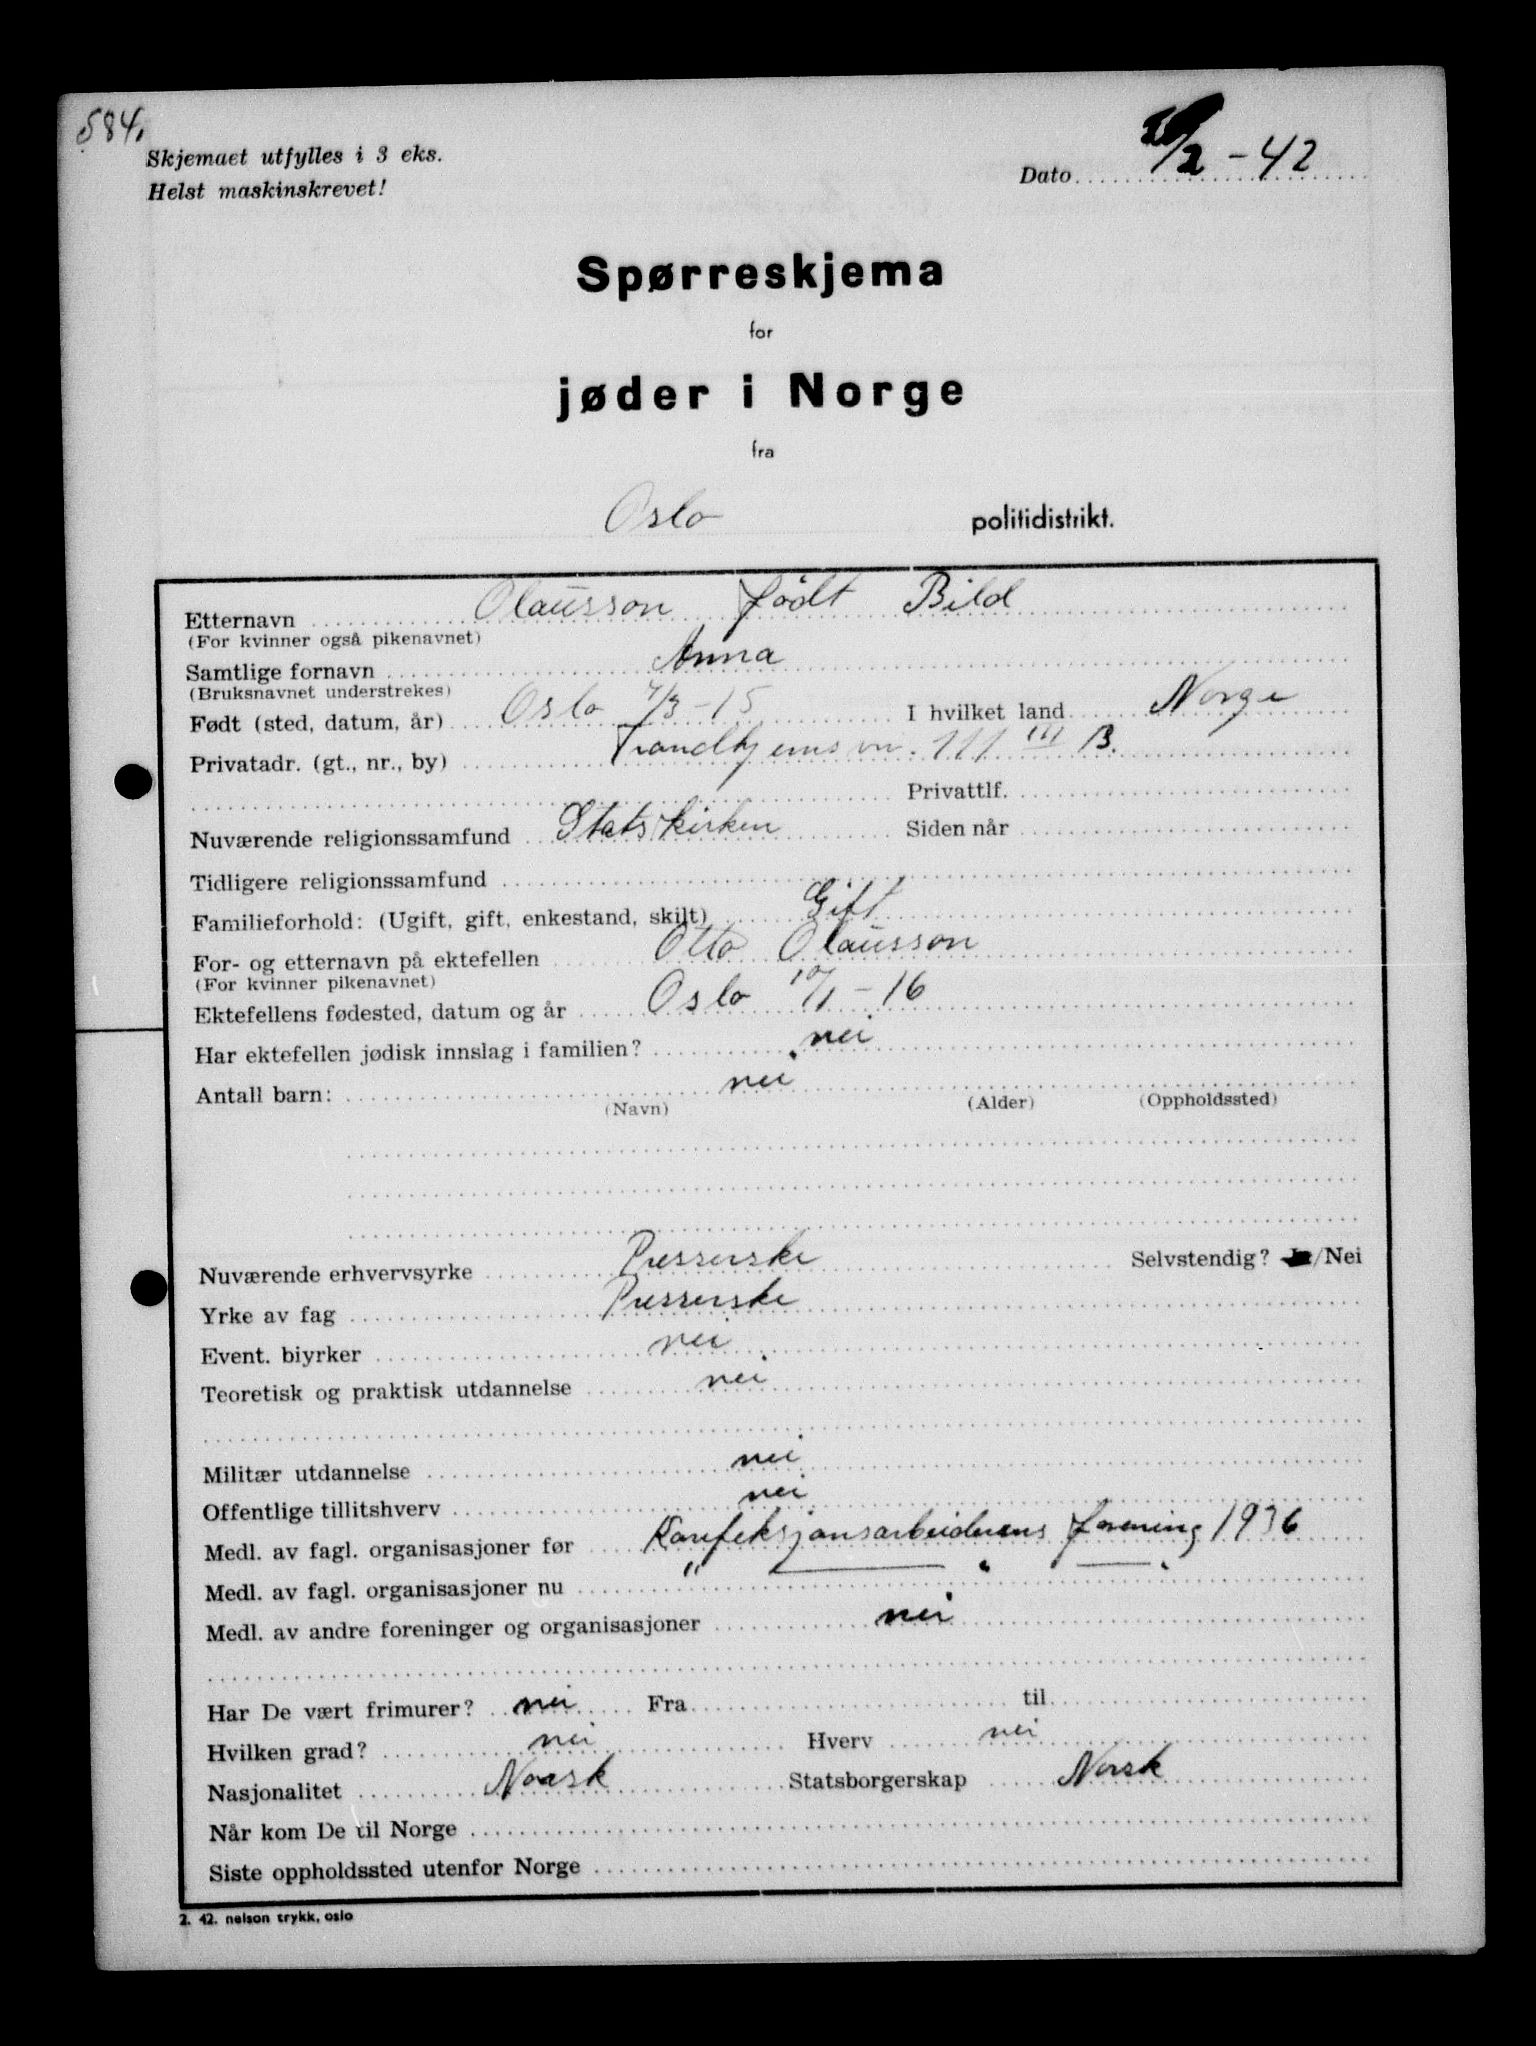 584.
Skjemaet utfylles i 3 eks.
Helst maskinskrevet!
Dato /2 - 42
Spørreskjema
for
jøder i Norge
fra
Oslo politidistrikt.
Etternavn Olaüsson født Bild
(For kvinner også pikenavnet)
Samtlige fornavn Anna
(Bruksnavnet understrekes)
Født (sted, datum, år) Oslo 4/3-15 I hvilket land Norge
Privatadr. (gt., nr., by) Trondhjemsvn. 111 III B.
Privattlf.
Nuværende religionssamfund Statskirken Siden når
Tidligere religionssamfund
Familieforhold: (Ugift, gift, enkestand, skilt) Gift
For- og etternavn på ektefellen Otto Olaüsson
(For kvinner pikenavnet)
Ektefellens fødested, datum og år Oslo 10/1-16
Har ektefellen jødisk innslag i familien? nei
Antall barn: nei
(Navn) (Alder) (Oppholdssted)
Nuværende erhvervsyrke Presserske Selvstendig? Ja/Nei
Yrke av fag Presserske
Event. biyrker nei
Teoretisk og praktisk utdannelse nei
Militær utdannelse nei
Offentlige tillitshverv nei
Medl. av fagl. organisasjoner før Konfeksjonsarbeidernes forening 1936
Medl. av fagl. organisasjoner nu " — " —
Medl. av andre foreninger og organisasjoner nei
Har De vært frimurer? nei Fra til
Hvilken grad? nei Hverv nei
Nasjonalitet Norsk Statsborgerskap Norsk
Når kom De til Norge
Siste oppholdssted utenfor Norge
2. 42. nelson trykk, oslo